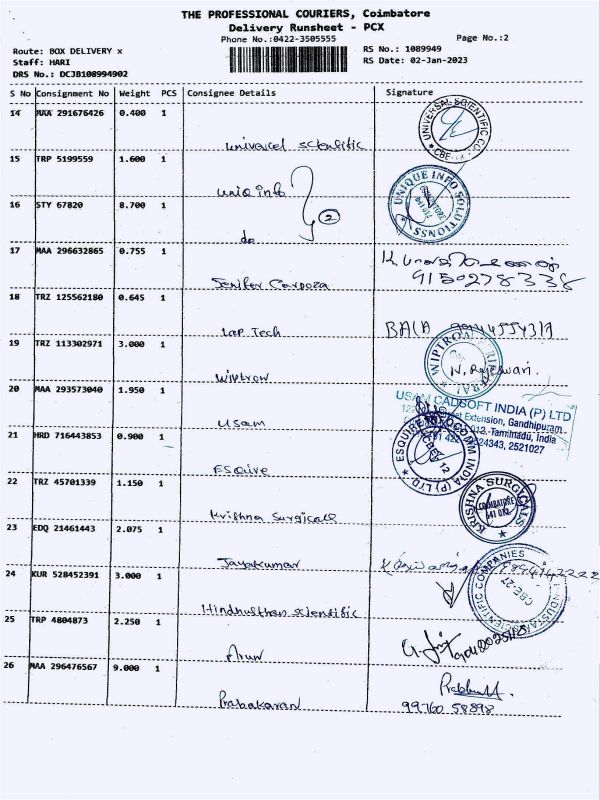 THE PROFESSIONAL COURIERS, Coimbatore
Delivery Runsheet - PCX
Phone No.:0422-3505555
Page No.:2
Route: BOX DELIVERY x
RS No.: 1089949
Staff: HARI
RS Date: 02-Jan-2023
DRS No.: DCJB108994902
S No Consignment No Weight PCS Consignee Details Signature
14 MAA 291676426 0.400 1
UNIVERSAL SCIENTIFIC CBE
Universel Scientific
15 TRP 5199559 1.600 1
Uniq info
UNIQUE INFO SOLUTIONSS COIMBATORE 641 012
16 STY 67820 8.700 1
2
do
17 MAA 296632865 0.755 1
9150278338
Senifer Cardoza
18 TRZ 125562180 0.645 1
Lap Tech BALA
19 TRZ 113302971 3.000 1
WIPTRON
N. Rajeswari.
Wiptrow
20 MAA 293573040 1.950 1
USAM CADSOFT INDIA (P) LTD
Extension, Gandhipuram
012. Tamilnadu, India
24343, 2521027
Usam
21 HRD 716443853 0.900 1
ESQUIRE INDIA (P) LTD
Esquire
22 TRZ 45701339 1.150 1
Krishna Surgicall
KRISHNA SURGICALS COIMBATORE 641 012
23 EDQ 21461443 2.075 1
Jayakumar
24 KUR 528452391 3.000 1
SCIENTIFIC COMPANIES CBE-27
Hindhusthan Scientific
25 TRP 4804873 2.250 1
Arun
26 MAA 296476567 9.000 1
Prabakaran 99760 58898